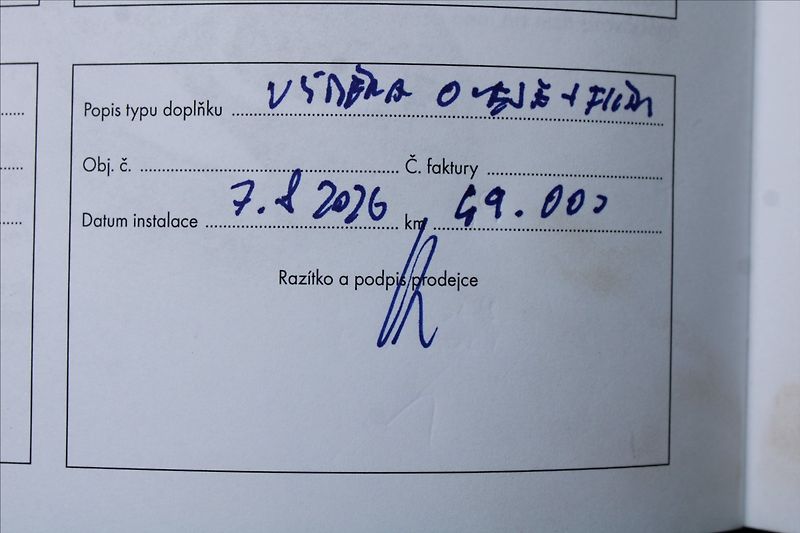 Popis typu doplňku VÝMĚNA OLEJE + FILTR
Obj. č. Č. faktury
Datum instalace 7. 8 2026 km 49.000
Razítko a podpis prodejce